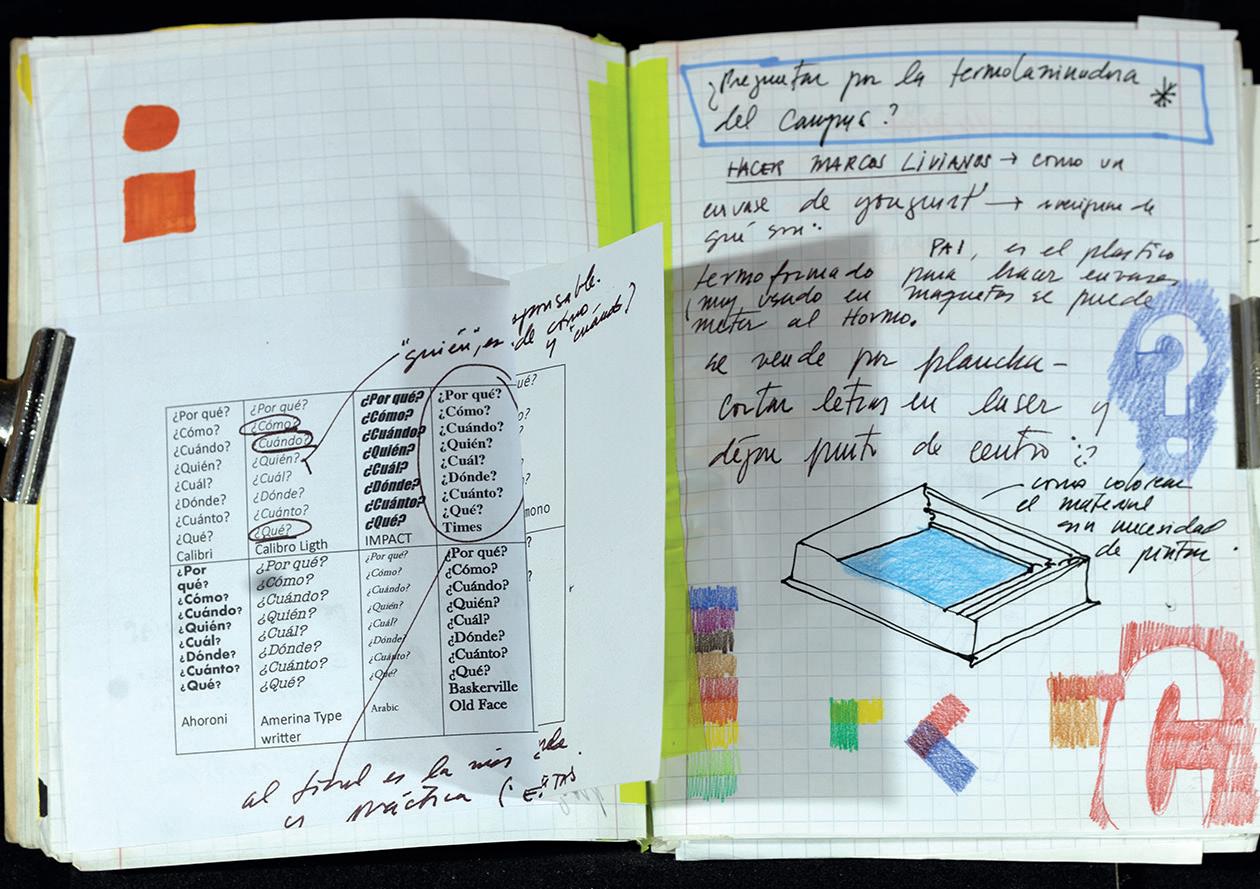 "quién", es
de cómo
y "cuándo"
¿Por qué?
¿Cómo?
¿Cuándo?
¿Quién?
¿Cuál?
¿Dónde?
¿Cuánto?
¿Qué?
Calibri
¿Por qué?
¿Cómo?
¿Cuándo?
¿Quién?
¿Cuál?
¿Dónde?
¿Cuánto?
¿Qué?
Calibro Ligth
¿Por qué?
¿Cómo?
¿Cuándo?
¿Quién?
¿Cuál?
¿Dónde?
¿Cuánto?
¿Qué?
IMPACT
¿Por qué?
¿Cómo?
¿Cuándo?
¿Quién?
¿Cuál?
¿Dónde?
¿Cuánto?
¿Qué?
Times
¿Por
qué?
¿Cómo?
¿Cuándo?
¿Quién?
¿Cuál?
¿Dónde?
¿Cuánto?
¿Qué?
Ahoroni
¿Por qué?
¿Cómo?
¿Cuándo?
¿Quién?
¿Cuál?
¿Dónde?
¿Cuánto?
¿Qué?
Amerina Type
writter
¿Por qué?
¿Cómo?
¿Cuándo?
¿Quién?
¿Cuál?
¿Dónde?
¿Cuánto?
¿Qué?
Arabic
¿Por qué?
¿Cómo?
¿Cuándo?
¿Quién?
¿Cuál?
¿Dónde?
¿Cuánto?
¿Qué?
Baskerville
Old Face
mono
al final es la más
práctica
¿Preguntar por la termolaminadora
del Campus? *
HACER MARCOS LIVIANOS → como un
envase de yougurt →
qué son:
PAI, es el plastico
termoformado para hacer envases
(muy usado en maquetas se puede
meter al Horno.
se vende por plancha -
cortar letras en laser y
dejar punto de centro
como colorear
el material
sin necesidad
de pintar.